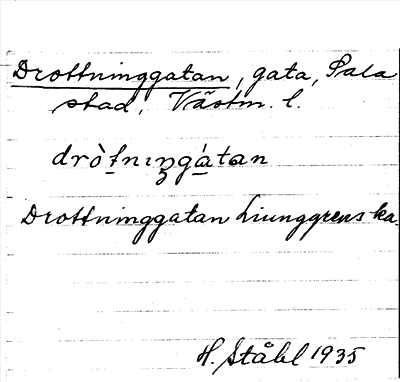 Drottninggatan, gata, Sala
stad, Västm. l.
drò̀tnıŋgátan
Drottninggatan Liunggrens ka.
H. Ståhl 1935